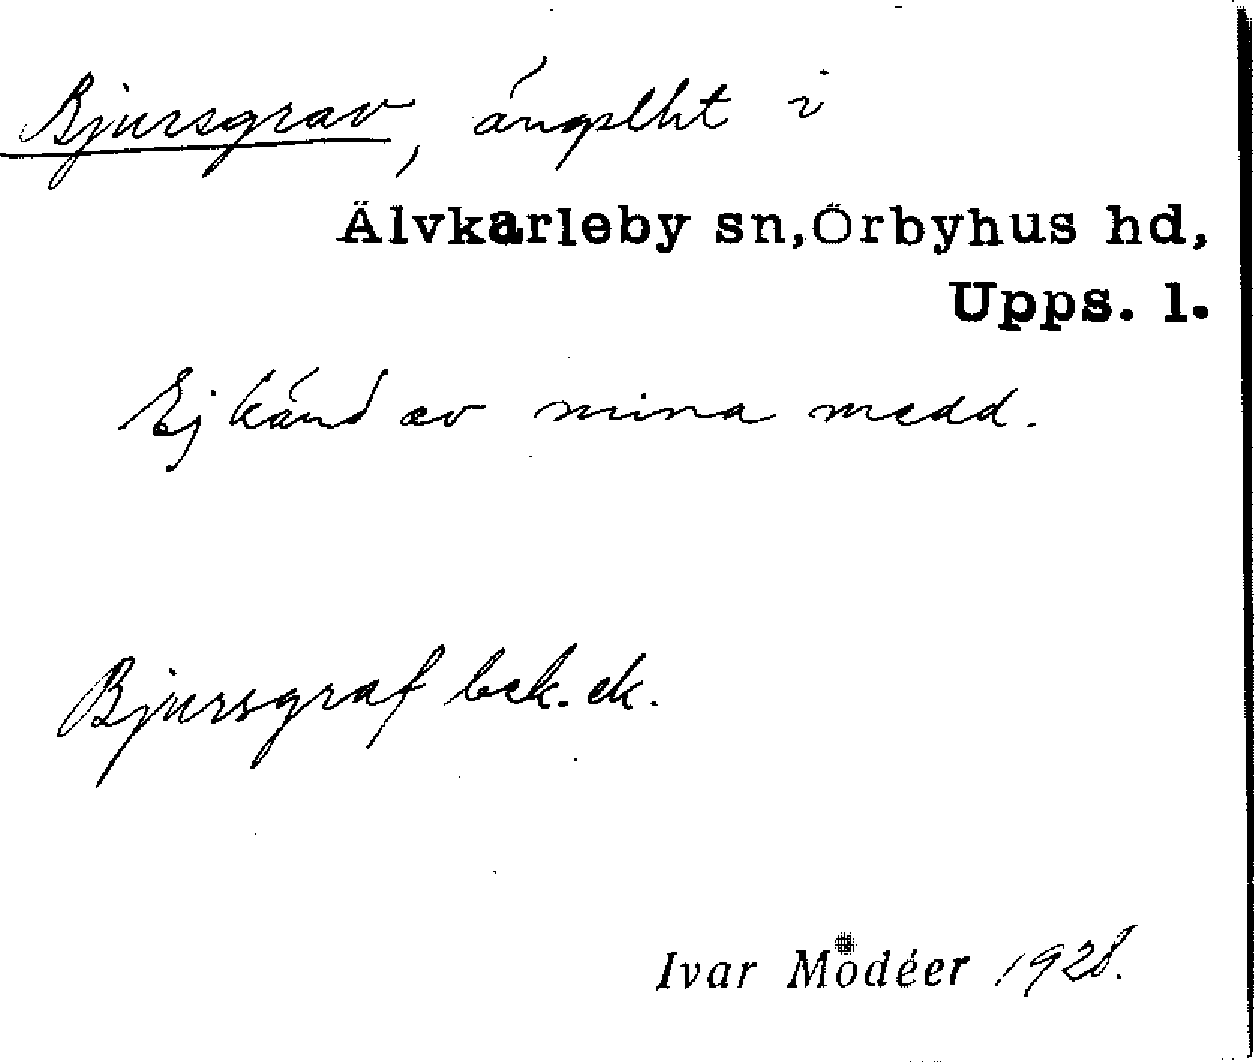 Bjursgrav, ängslht i
Älvkarleby sn, Örbyhus hd,
Upps. l.
Ej känd av mina medd.
Bjursgraf bek. ek.
Ivar Modéer 1928.